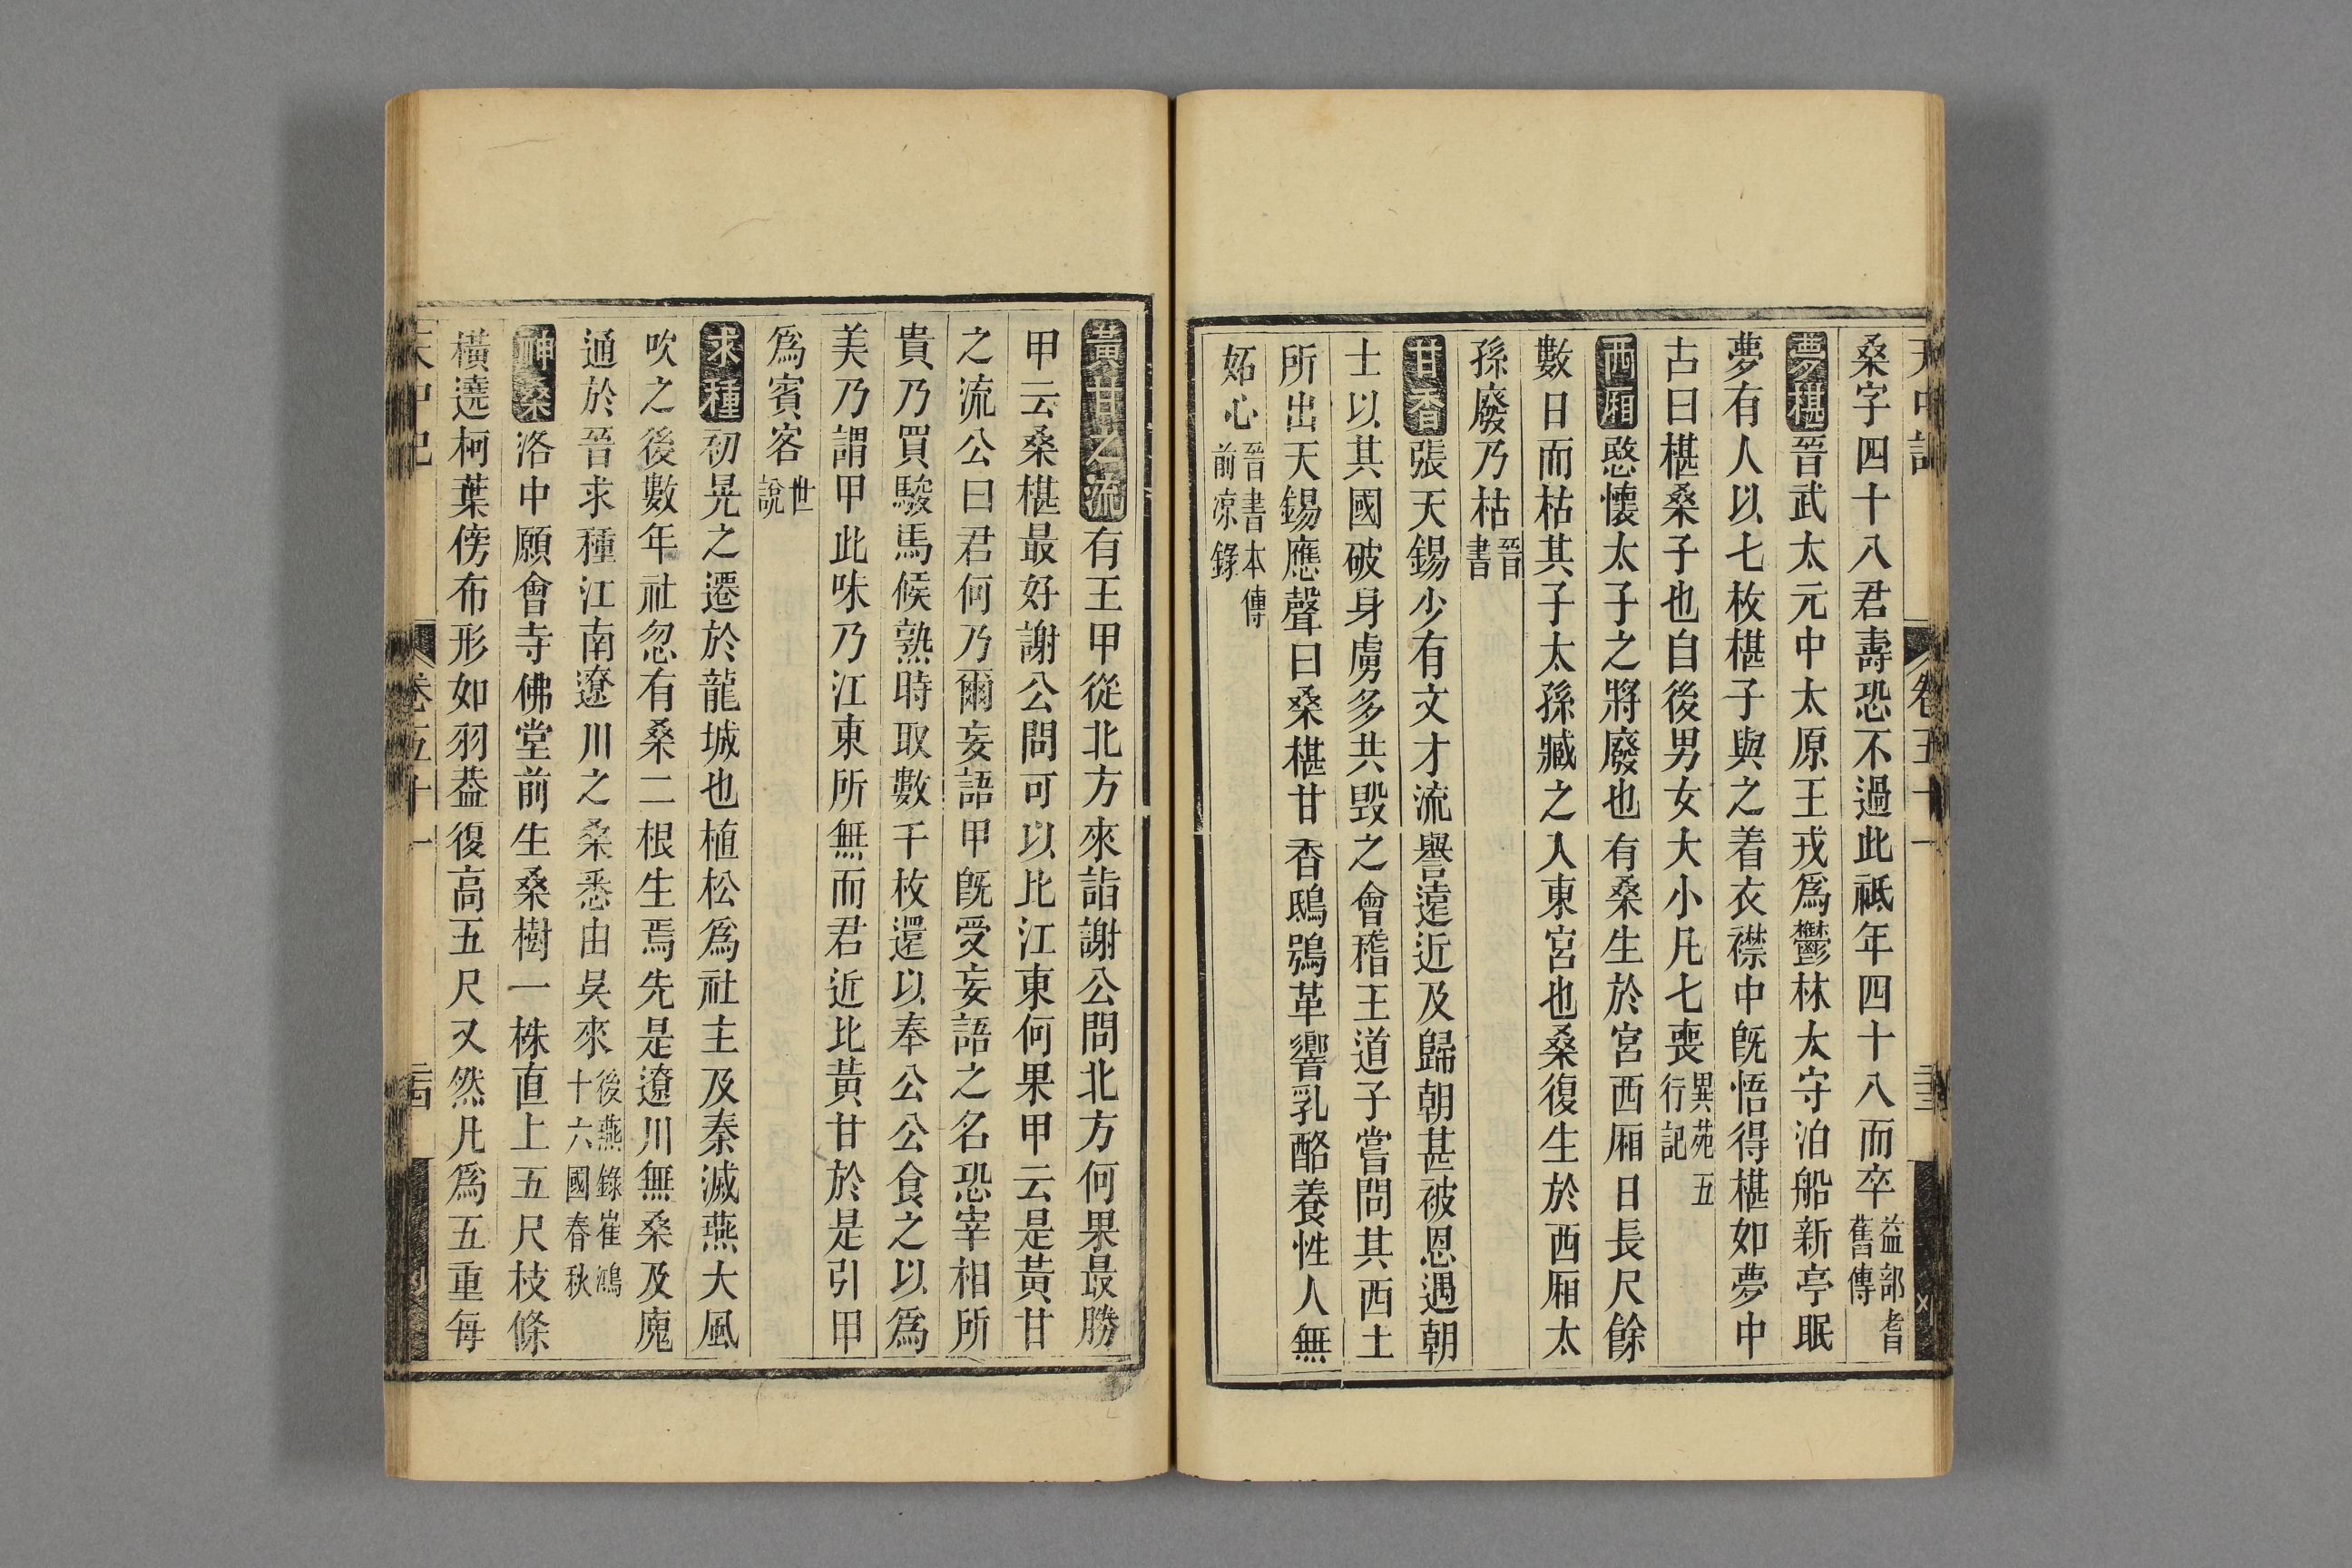 桑字四十八君壽恐不過此祗年四十八而卒益部耆舊傳
夢椹晉武太元中太原王戎爲鬱林太守泊船新亭眠
夢有人以七枚椹子與之着衣襟中旣悟得椹如夢中
古曰椹桑子也自後男女大小凡七喪異苑五行記
西廂愍懷太子之將廢也有桑生於宮西廂日長尺餘
數日而枯其子太孫臧之入東宮也桑復生於西廂太
孫廢乃枯晉書
甘香張天錫少有文才流譽遠近及歸朝甚被恩遇朝
士以其國破身虜多共毀之會稽王道子嘗問其西土
所出天錫應聲曰桑椹甘香鴟鴞革響乳酪養性人無
妬心晉書本傳前凉錄
黃甘之流有王甲從北方來詣謝公問北方何果最勝
甲云桑椹最好謝公問可以比江東何果甲云是黃甘
之流公曰君何乃爾妄語甲旣受妄語之名恐宰相所
貴乃買駿馬候熟時取數千枚還以奉公公食之以爲
美乃謂甲此味乃江東所無而君近比黃甘於是引甲
爲賓客世說
求種初晃之遷於龍城也植松爲社主及秦滅燕大風
吹之後數年社忽有桑二根生焉先是遼川無桑及廆
通於晉求種江南遼川之桑悉由吳來後燕錄崔鴻十六國春秋
神桑洛中願會寺佛堂前生桑樹一株直上五尺枝條
橫遶柯葉傍布形如羽葢復高五尺又然凡爲五重每